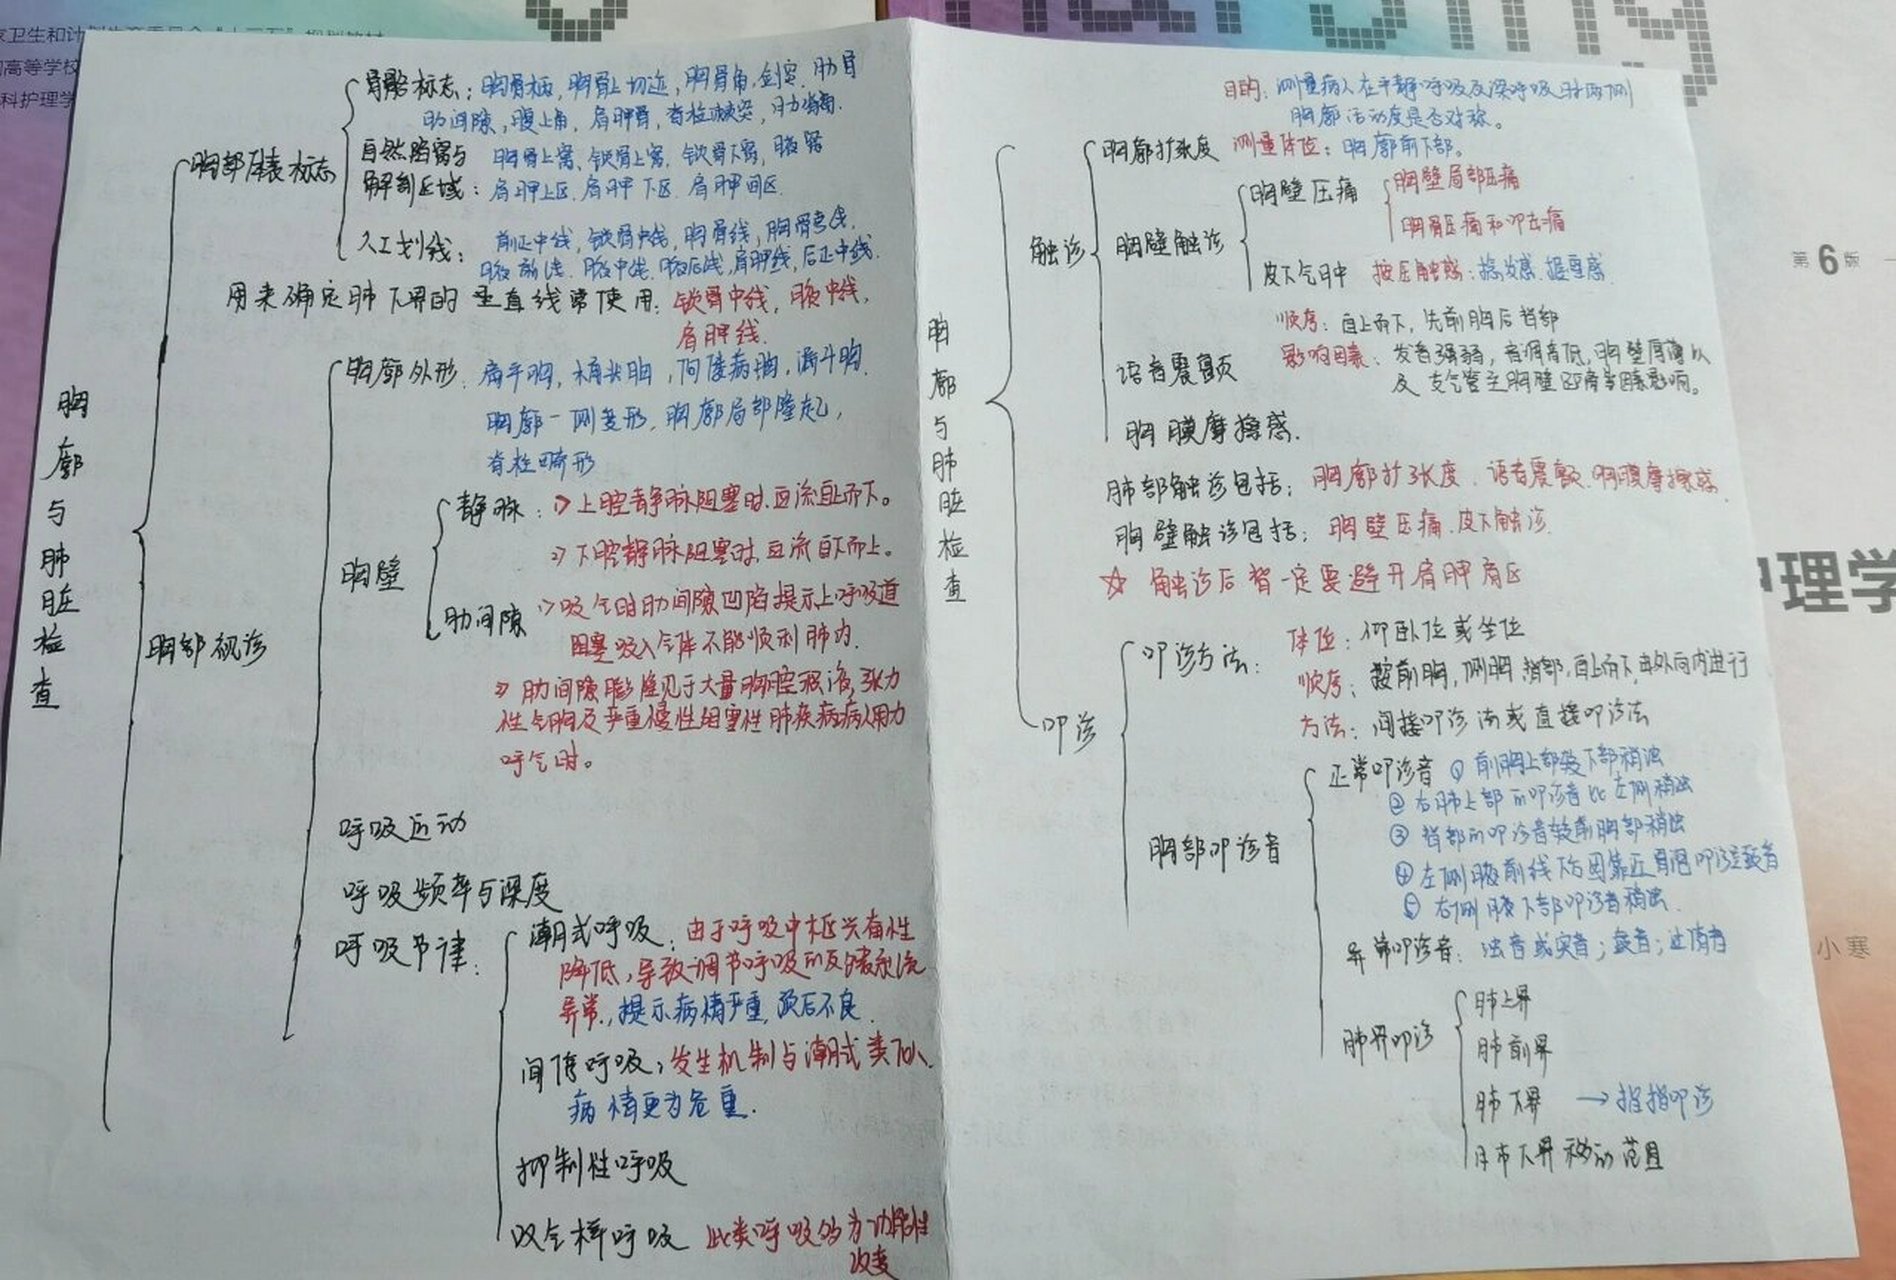 胸廓与肺脏检查
胸部体表标志
骨骼标志：胸骨柄，胸骨上切迹，胸骨角，剑突，肋骨
肋间隙，腹上角，肩胛骨，脊柱棘突，肋脊角.
自然陷窝与
解剖区域：
胸骨上窝、锁骨上窝，锁骨下窝，腋窝
肩胛上区.肩胛下区.肩胛间区.
人工划线：
前正中线，锁骨中线，胸骨线，胸骨旁线，
腋前线.腋中线.腋后线，肩胛线，后正中线.
用来确定肺下界的垂直线常使用：锁骨中线，腋中线，
肩胛线.
胸部视诊
胸廓外形：扁平胸，桶状胸，佝偻病胸，漏斗胸.
胸廓一侧变形，胸廓局部隆起，
脊柱畸形
胸壁
静脉：1) 上腔静脉阻塞时.血流自上而下。
2) 下腔静脉阻塞时，血流自下而上。
肋间隙 1) 吸气时肋间隙凹陷提示上呼吸道
阻塞吸入气体不能顺利肺内.
2) 肋间隙膨隆见于大量胸腔积液，张力
性气胸及严重慢性阻塞性肺疾病病人用力
呼气时。
呼吸运动
呼吸频率与深度
呼吸节律：
潮式呼吸：由于呼吸中枢兴奋性
降低，导致调节呼吸的反馈系统
异常.，提示病情严重，预后不良.
间停呼吸：发生机制与潮式类似，
病情更为危重.
抑制性呼吸
叹气样呼吸 此类呼吸多为功能性
改变
胸廓与肺脏检查
触诊
胸廓扩张度
目的：测量病人在平静呼吸及深呼吸时两侧
胸廓活动度是否对称。
测量体位：胸廓前下部。
胸壁触诊
胸壁压痛
胸壁局部压痛
胸骨压痛和叩击痛
皮下气肿 按压触感：捻发感.握雪感.
语音震颤
顺序：自上而下，先前胸后背部
影响因素：发音强弱，音调高低，胸壁厚薄以
及支气管至胸壁距离等因素影响。
胸膜摩擦感.
肺部触诊包括：胸廓扩张度.语音震颤.胸膜摩擦感.
胸壁触诊包括：胸壁压痛.皮下触诊.
☆ 触诊后背一定要避开肩胛骨区
叩诊
叩诊方法：
体位：仰卧位或坐位
顺序：按前胸，侧胸，背部，自上而下，由外向内进行
方法：间接叩诊法或直接叩诊法
胸部叩诊音
正常叩诊音 ① 前胸上部较下部稍浊
② 右肺上部的叩诊音比左侧稍浊
③ 背部的叩诊音较前胸部稍浊
④ 左侧腋前线下方因靠近胃泡叩诊呈鼓音
⑤ 右侧腋下部叩诊音稍浊.
异常叩诊音：浊音或实音；鼓音；过清音
肺界叩诊
肺上界
肺前界
肺下界 → 指指叩诊
肺下界移动范围
家卫生和计划生育委员会“十三五”规划教材
国高等学校
科护理学
第6版
护理学
小寒